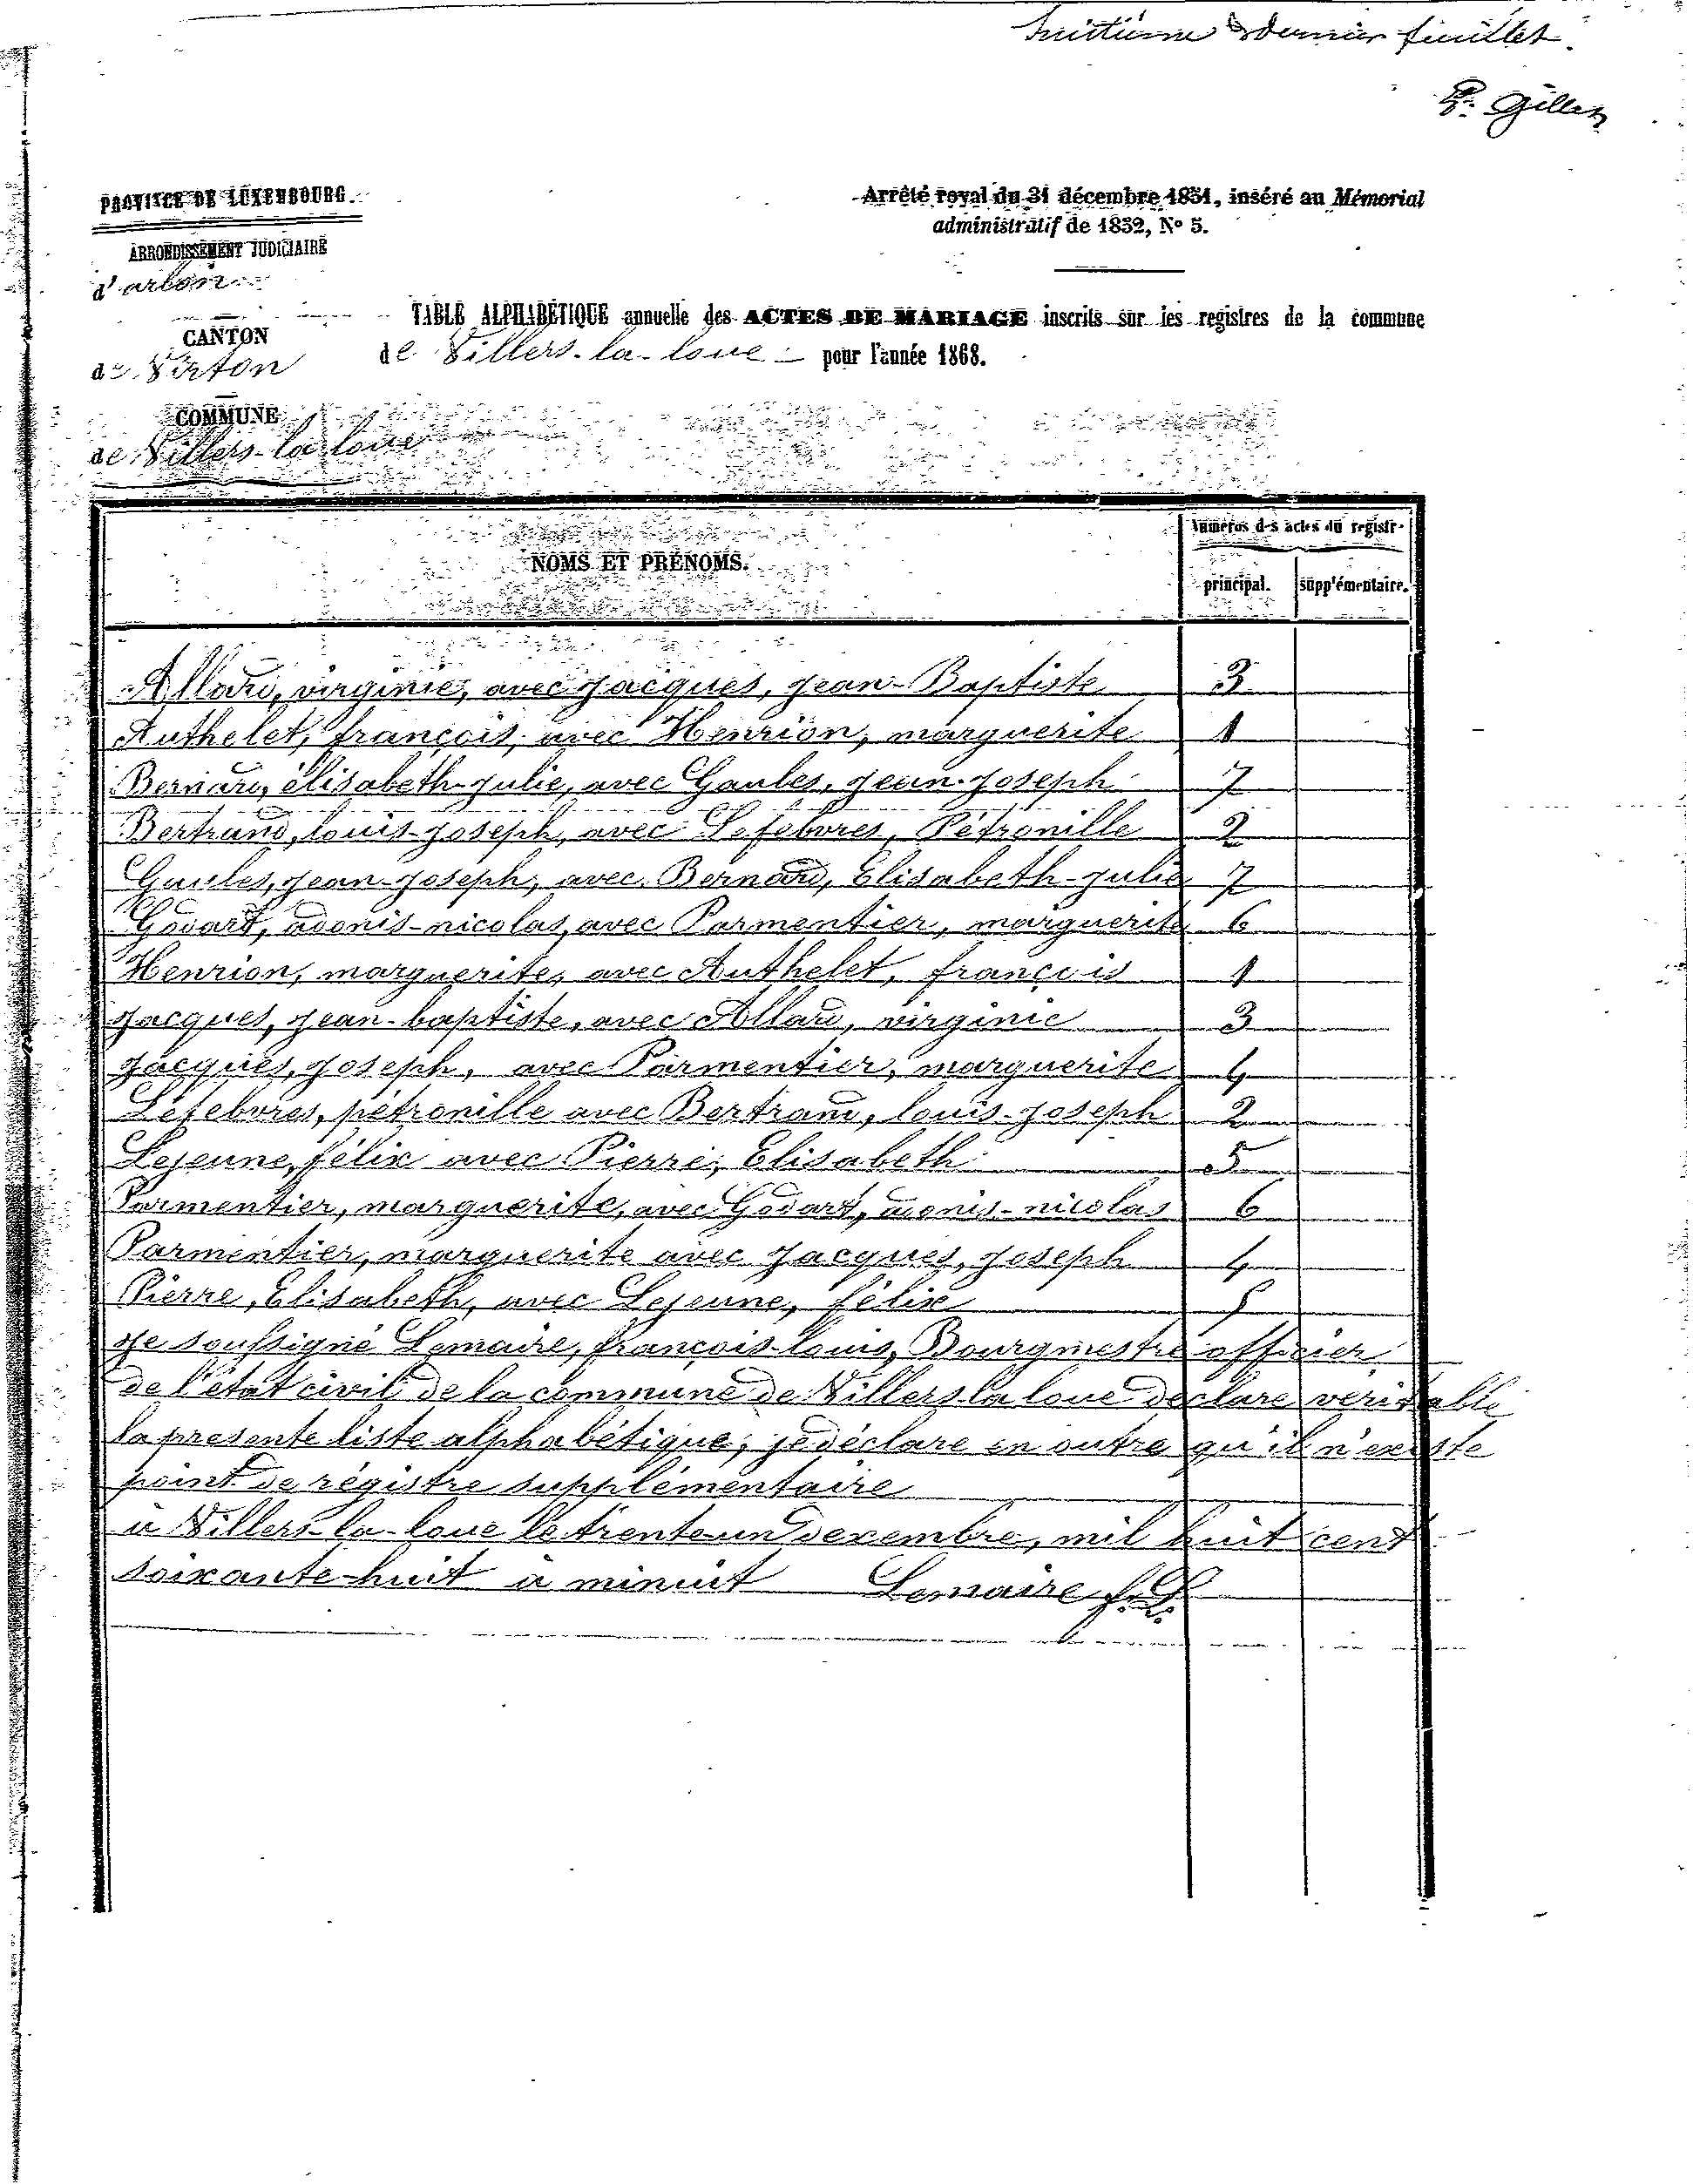 huitième & dernier feuillet.
P. Gillet
PROVINCE DE LUXEMBOURG.
ARRONDISSEMENT JUDICIAIRE
d'arlon
CANTON
de Virton
COMMUNE
de Villers-la-loue
Arrêté royal du 31 décembre 1831, inséré au Mémorial
administratif de 1832, No 5.
TABLE ALPHABÉTIQUE annuelle des ACTES DE MARIAGE inscrits sur les registres de la commune
de Villers-la-loue pour l'année 1868.
NOMS ET PRÉNOMS.
Numéros des actes du registre
principal. supplémentaire.
Allard, virginie, avec Jacques, Jean-Baptiste 3
Authelet, françois, avec Henrion, marguerite 1
Bernard, élisabeth-julie, avec Gaules, Jean-Joseph 7
Bertrand, louis-Joseph, avec Lefebvres, Pétronille 2
Gaules, Jean-Joseph, avec Bernard, Elisabeth-julie 7
Godart, adonis-nicolas, avec Parmentier, marguerite 6
Henrion, marguerite, avec Authelet, françois 1
Jacques, Jean-baptiste, avec Allard, virginie 3
Jacques, Joseph, avec Parmentier, marguerite 4
Lefebvres, pétronille avec Bertrand, louis-Joseph 2
Lejeune, félix avec Pierre, Elisabeth 5
Parmentier, marguerite, avec Godart, adonis-nicolas 6
Parmentier, marguerite avec Jacques, Joseph 4
Pierre, Elisabeth, avec Lejeune, félix 5
Je soussigné Lemaire, françois-louis, Bourgmestre officier
de l'état civil de la commune de Villers-la loue déclare véritable
la présente liste alphabétique, je déclare en outre qu'il n'existe
point de régistre supplémentaire
à Villers-la-loue le trente-un decembre, mil huit cent
soixante-huit à minuit Lemaire f. L.